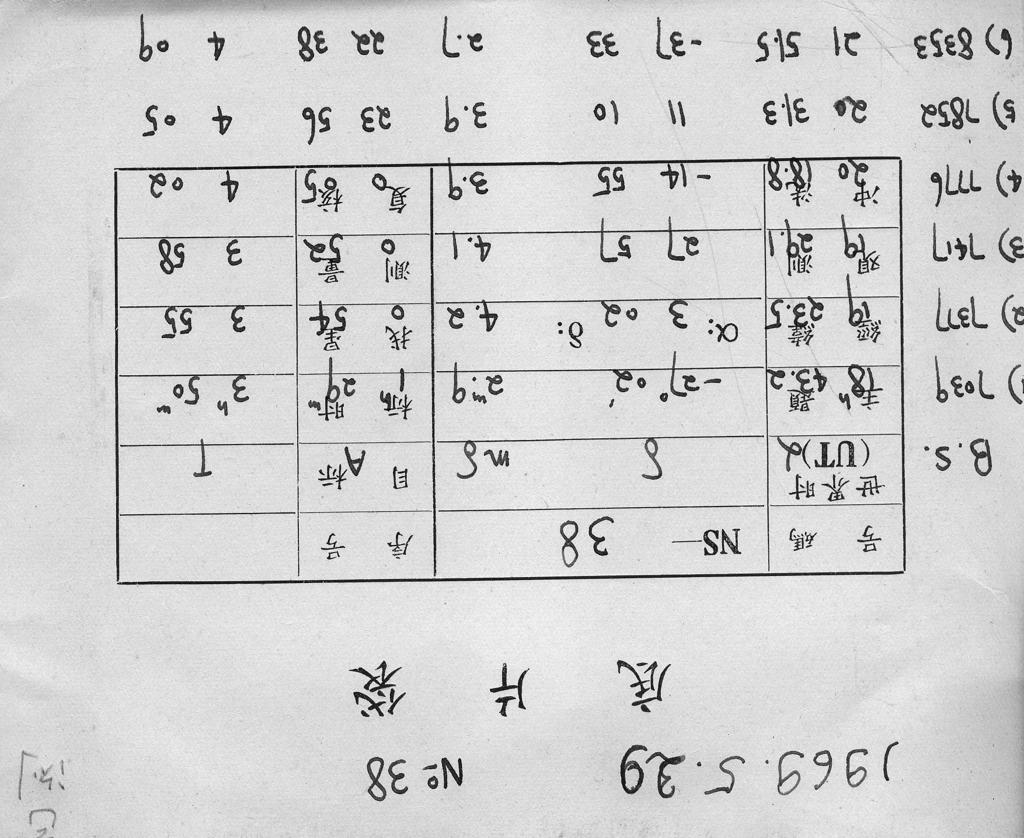 1969.5.29 №38
底 片 袋
号 碼 NS— 38 序 号
世界时 目 标
B.S. (UT) α δ mδ A T
1) 7039 18ʰ 43.2 -27° 02′ 2ᵐ.9 1ʰ 29ᵐ 3ʰ 50ᵐ
主 題 标 时
2) 7377 19 23.5 3 02 4.2 0 54 3 55
經 緯 α: δ: 找 星
3) 7417 19 29.1 27 57 4.1 0 52 3 58
觀 測 测 量
4) 7776 20 18.8 -14 55 3.9 0 05 4 02
冲 洗 复 核
5) 7852 20 31.3 11 10 3.9 23 56 4 05
6) 8353 21 51.5 -37 33 2.7 22 38 4 09